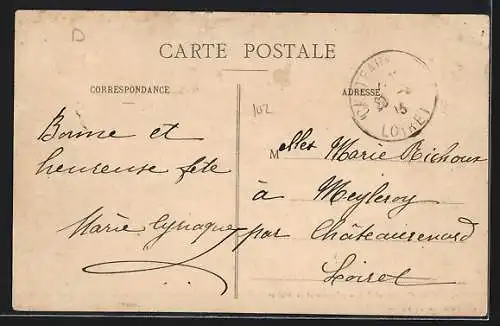 D
CARTE POSTALE
CORRESPONDANCE
ADRESSE
102
LOIRET
15
Bonne et
heureuse fête
Marie
Melles Marie Richoux
à Meyleroy
par Châteaurenard
Loiret